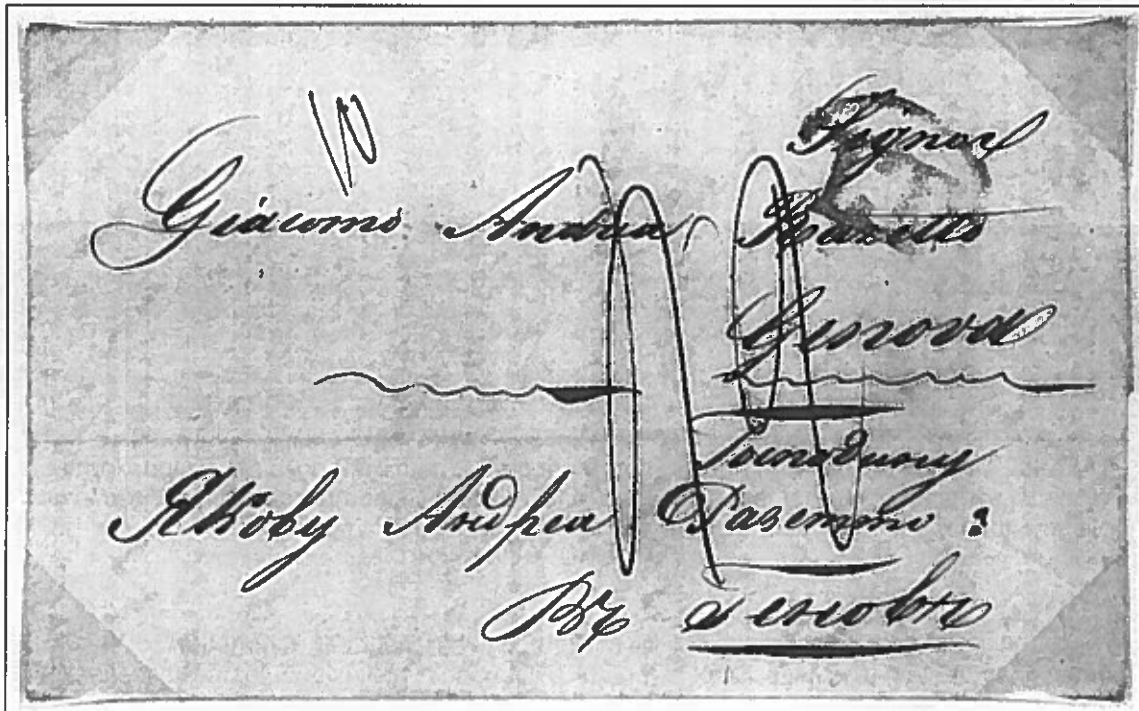 10
Signor
Giacomo Andrea Razetto
Genova
Господину
Якову Андреа Разетто :
Въ Геновѣ